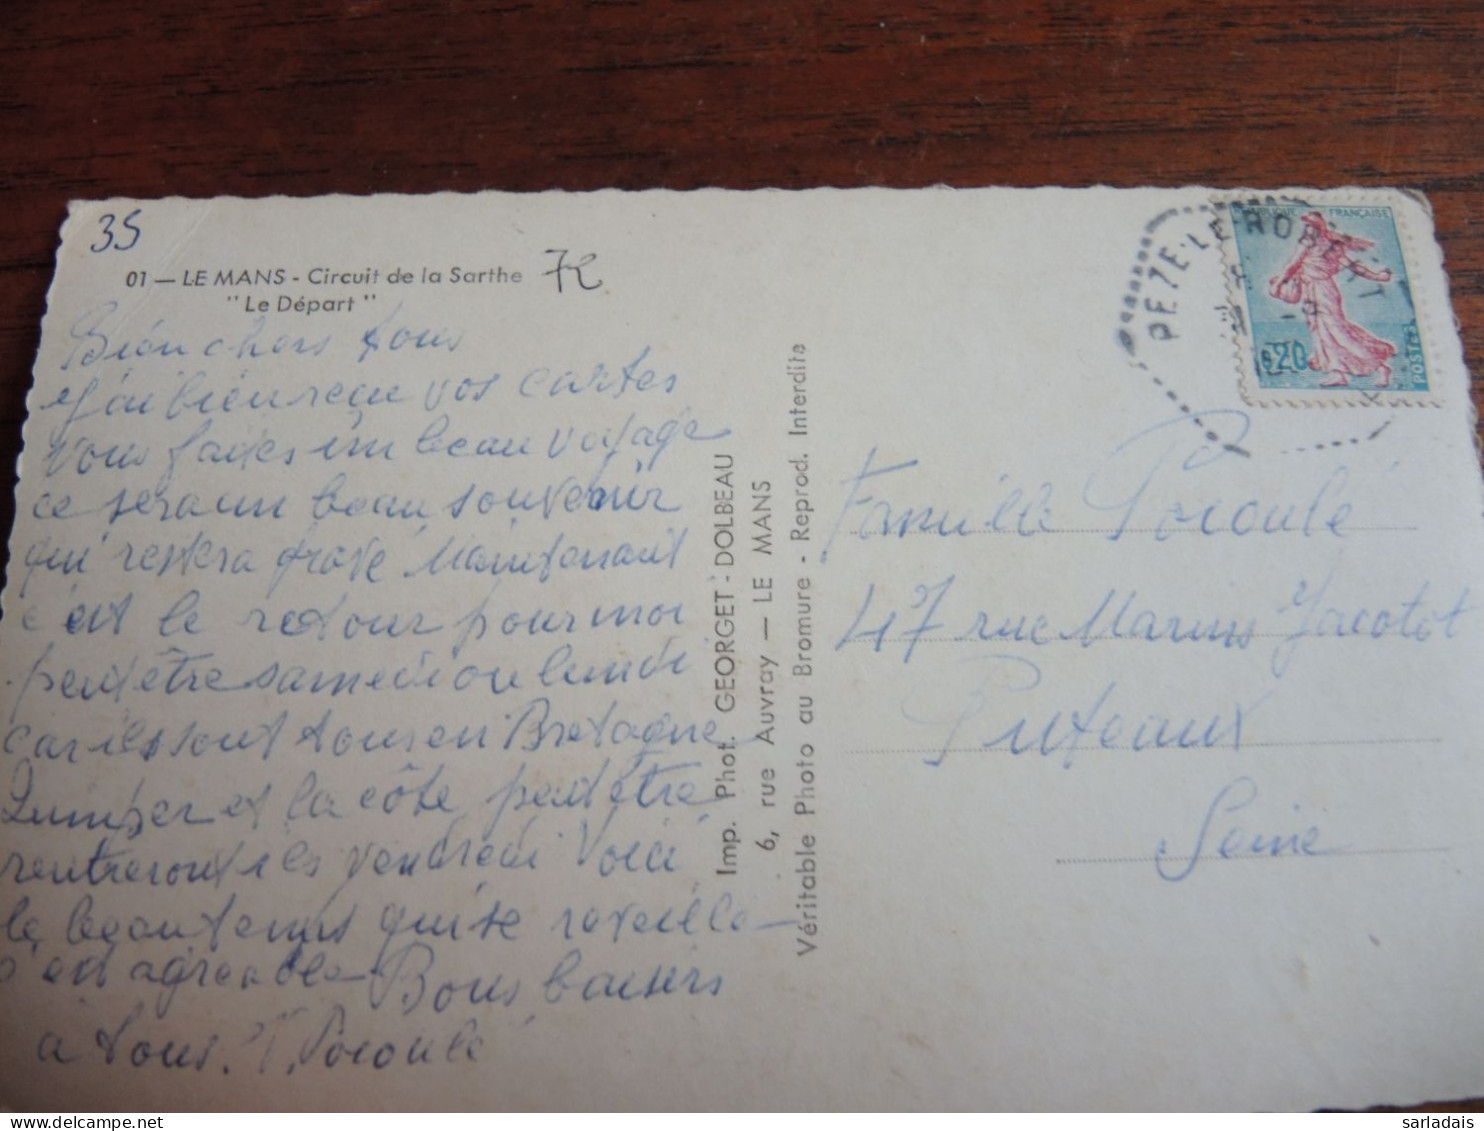 35
01 — LE MANS - Circuit de la Sarthe 72
"Le Départ"
Bien chers tous
J'ai bien reçu vos cartes
Vous faites un beau voyage
ce sera un beau souvenir
qui restera gravé Maintenant
c'est le retour pour moi
peut être samedi ou lundi
car ils sont tous en Bretagne
Quimper et la côte peut être
rentreront ils vendredi Voici
le beau temps qui se réveille
c'est agréable Bons baisers
à tous. T. Pocoulé
Imp. Phot. GEORGET - DOLBEAU
6, rue Auvray — LE MANS
Véritable Photo au Bromure - Reprod. Interdite
PEZE-LE-ROBERT
RÉPUBLIQUE FRANÇAISE
0,20
POSTES
Famille Pocoulé
47 rue Marius Jacotot
Puteaux
Seine
sarladais